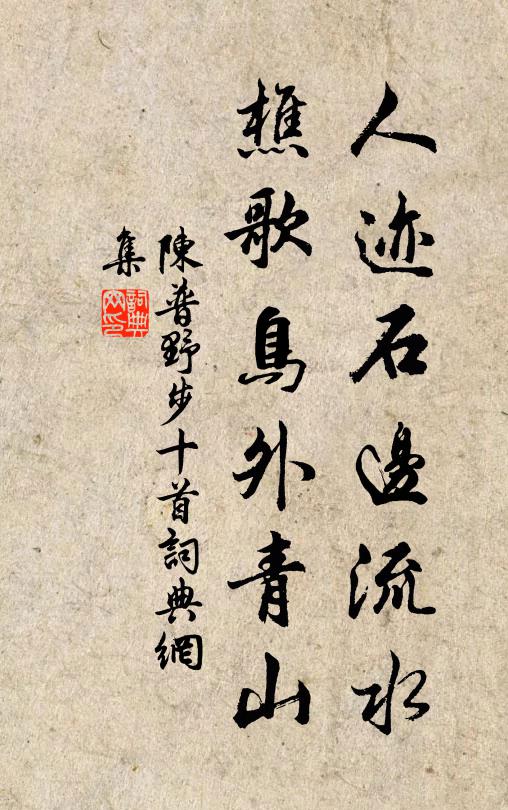 人迹石邊流水
樵歌鳥外青山
陳普野步十首詞典網
集
詞典
网印